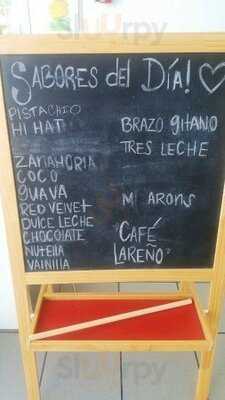 SABORES del DÍA! ♡
PISTACHIO
HI HAT
ZANAHORIA
COCO
guava
RED VELVET
DULCE LECHE
CHOCOLATE
NUTELLA
VAINILLA
BRAZO gitANO
TRES LECHE
M ARONS
"CAFÉ
LAREÑO"
Sluurpy
Sluurpy